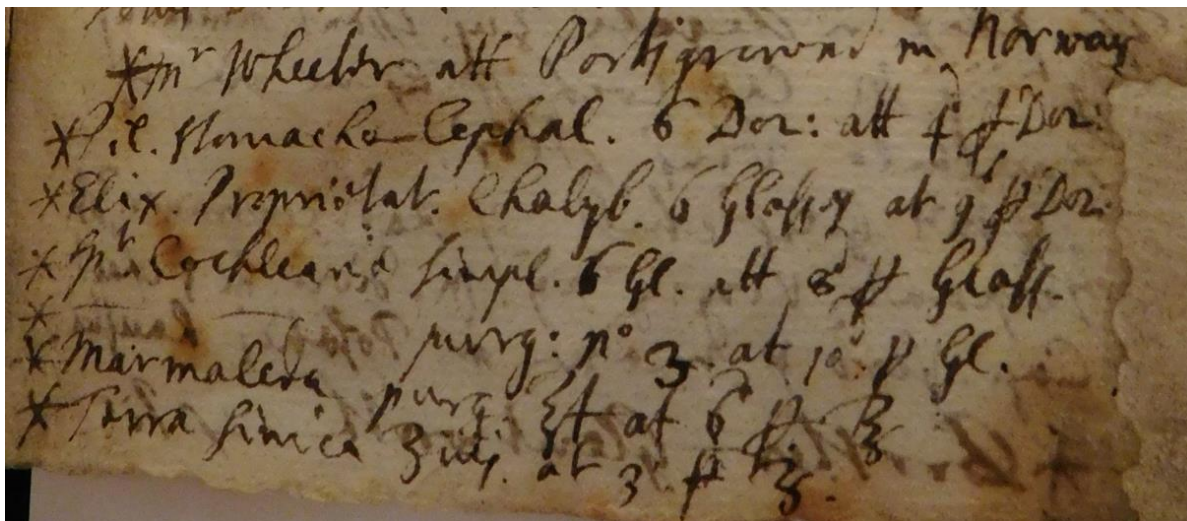 *Mr Wheeler att Portsgrownd in Norway
*Pil. Stomacho Cephal. 6 Doz: att 4d ꝑ Doz:
*Elix. Proprietat. Chalyb. 6 Glasses at 9 ꝑ Doz:
*Spt Cochleariæ simpl. 6 Gl. att 8d ꝑ Glass.
* — purg: no 3 at 10d ꝑ Gl.
*Marmaleda purg. ℥ at 6d ꝑ ℥
*Terra sinica ℥iiij. at 3 ꝑ ℥.